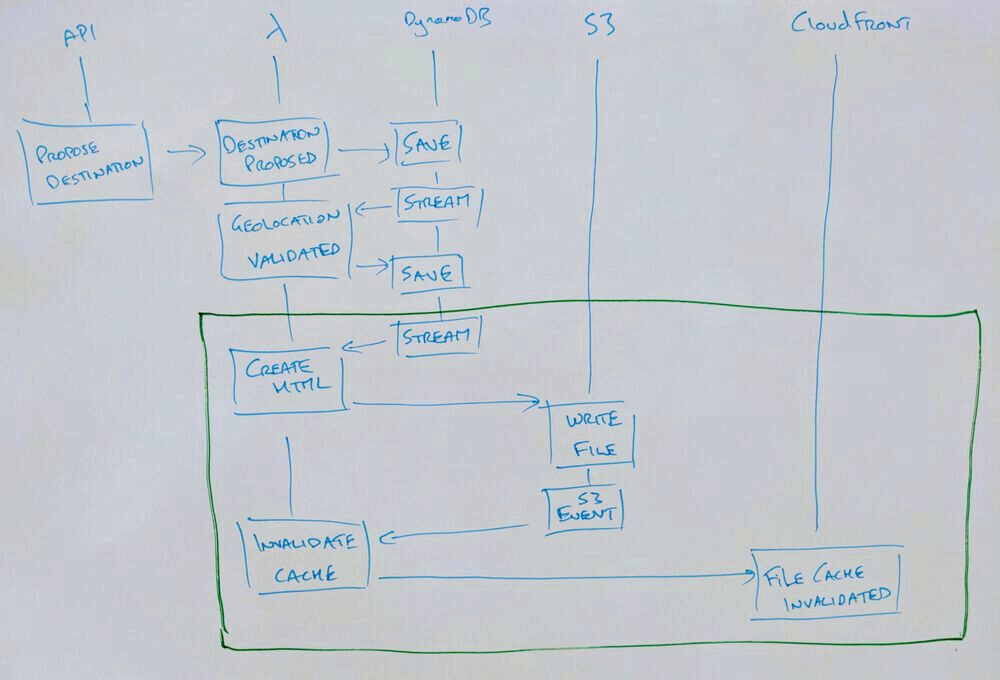 API
λ
DynamoDB
S3
CloudFront
PROPOSE
DESTINATION
DESTINATION
PROPOSED
SAVE
STREAM
GEOLOCATION
VALIDATED
SAVE
STREAM
CREATE
HTML
WRITE
FILE
S3
EVENT
INVALIDATE
CACHE
FILE CACHE
INVALIDATED